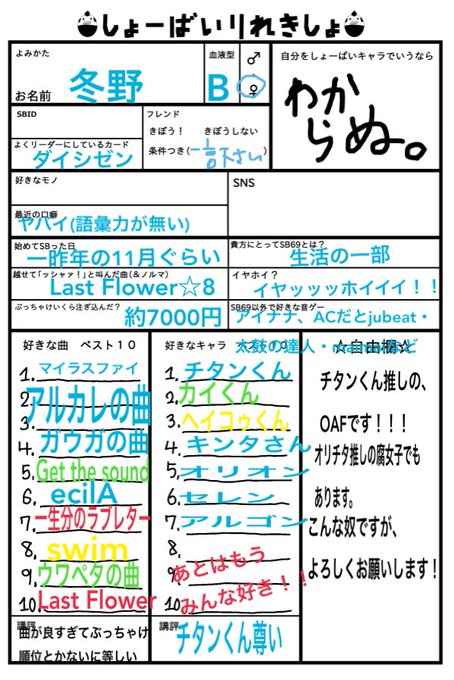 しょーばいりれきしょ
よみかた
お名前
冬野
血液型
B
♂
♀
自分をしょーばいキャラでいうなら
わか
らぬ。
SBID
フレンド
きぼう! きぼうしない
条件つき(一言下さい)
よくリーダーにしているカード
ダイシゼン
好きなモノ
SNS
最近の口癖
ヤバイ(語彙力が無い)
始めてSBった日
一昨年の11月ぐらい
貴方にとってSB69とは?
生活の一部
越せて「ッシャァ!」と叫んだ曲(&ノルマ)
Last Flower☆8
イヤホイ?
イヤッッッホイイイ!!
ぶっちゃけいくら注ぎ込んだ?
約7000円
SB69以外で好きな音ゲー
アイナナ、ACだとjubeat・
太鼓の達人・maimaiなど
好きな曲 ベスト10
1. マイラスファイ
2. アルカレの曲
3.
4. ガウガの曲
5. Get the sound
6. ecilA
7. 一生分のラブレター
8. swim
9. ウワペタの曲
10. Last Flower
講評
曲が良すぎてぶっちゃけ
順位とかないに等しい
好きなキャラ
1. チタンくん
2. カイくん
3. ヘイコゥくん
4. キンタさん
5. オリオン
6. セレン
7. アルゴン
8.
9. あとはもう
10. みんな好き!!
講評
チタンくん尊い
☆自由欄☆
チタンくん推しの、
OAFです!!!
オリチタ推しの腐女子でも
あります。
こんな奴ですが、
よろしくお願いします!